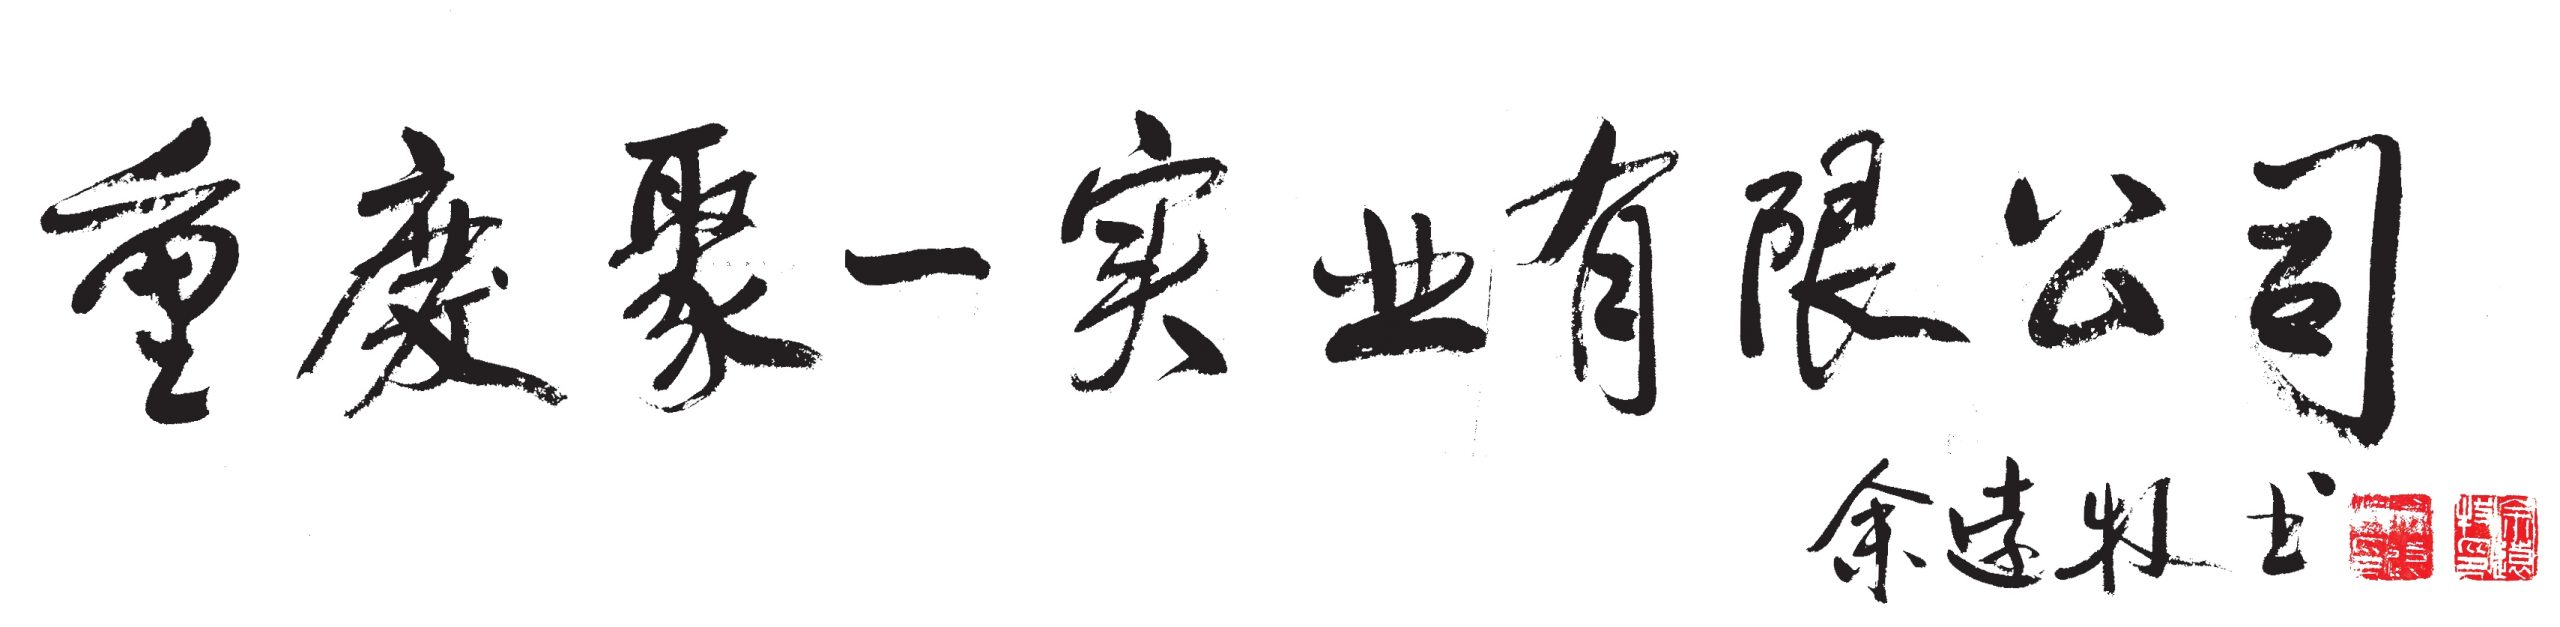 重慶聚一实业有限公司
余远牧书